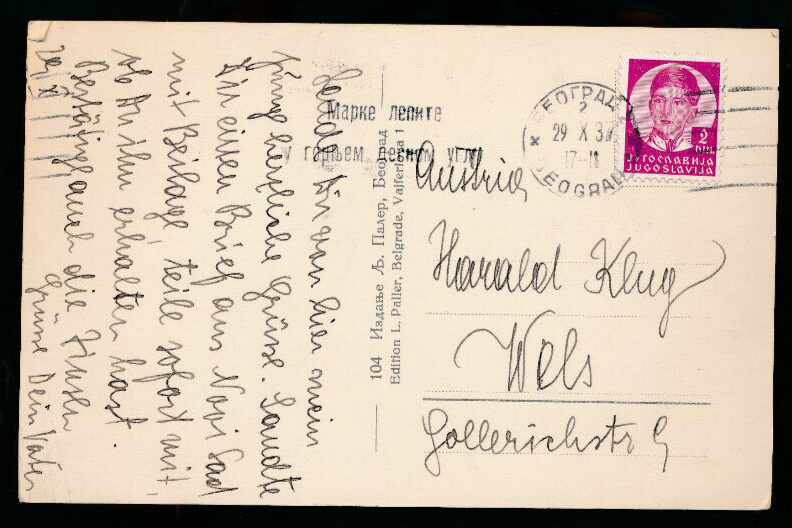 Sende Dir von hier mein
Junge herzliche Grüsse. Sandte
Dir einen Brief aus Novi Sad
mit Beilage, teile sofort mit,
ob Du ihn erhalten hast.
auch die
Grüsse Dein Vater
29/X
Марке лепите
у горњем десном углу
104 Издање Љ. Палер, Београд
Edition L. Paller, Belgrade, Vajfertova 1
БЕОГРАД
2
29 X 37
17-18
BEOGRAD
2
DIN.
ЈУГОСЛАВИЈА
JUGOSLAVIJA
Austria
Harald Klug
Wels
Gollerichstr 9